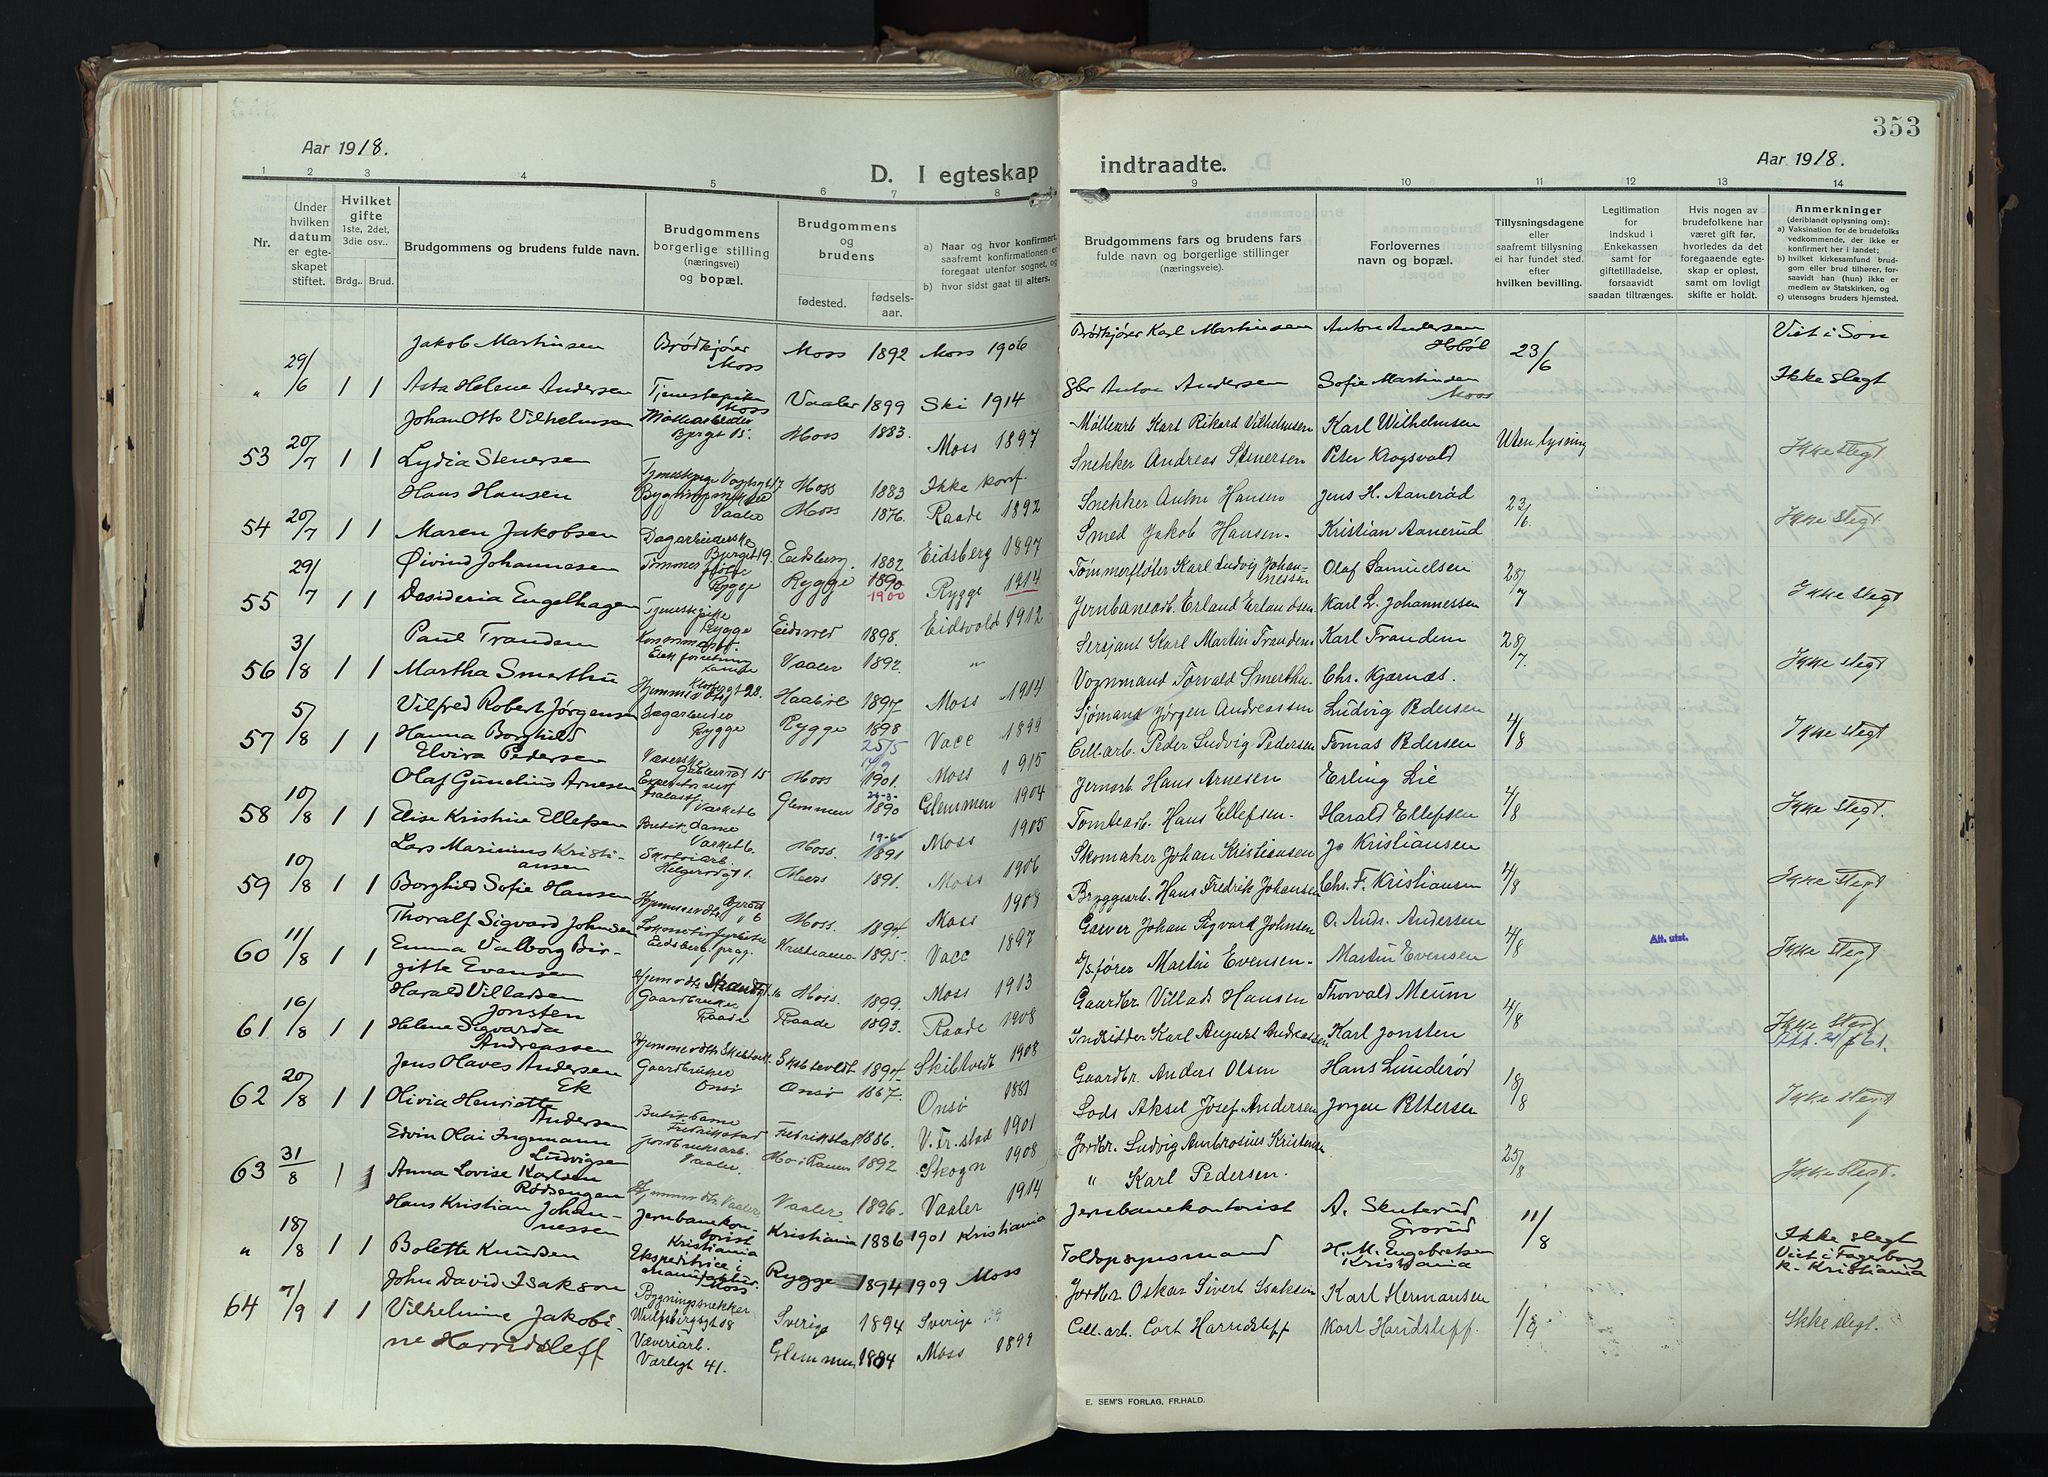 353
Aar 1918.
D. I egteskap indtraadte.
Aar 1918.
1 2 3 4 5 6 7 8 9 10 11 12 13 14
Nr.
Under hvilken datum er egteskapet stiftet.
Hvilket gifte 1ste, 2det, 3die osv..
Brdg.. Brud.
Brudgommens og brudens fulde navn.
Brudgommens borgerlige stilling (næringsvei) og bopæl.
Brudgommens og brudens
fødested. fødsels-aar.
a) Naar og hvor konfirmert, saafremt konfirmationen er foregaat utenfor sognet, og
b) hvor sidst gaat til alters.
Brudgommens fars og brudens fars fulde navn og borgerlige stillinger (næringsveie).
Forlovernes navn og bopæl.
Tillysningsdagene eller saafremt tillysning ei har fundet sted. efter hvilken bevilling.
Legitimation for indskud i Enkekassen samt for giftetilladelse, forsaavidt saadan tiltrænges.
Hvis nogen av brudefolkene har været gift før, hvorledes da det foregaaende egteskap er opløst, samt om lovligt skifte er holdt.
Anmerkninger (deriblandt oplysning om):
a) Vaksination for de brudefolks vedkommende, der ikke er konfirmert her i landet;
b) hvilket kirkesamfund brudgom eller brud tilhører, forsaavidt han (hun) ikke er medlem av Statskirken, og
c) utensogns bruders hjemsted.
Jakob Martinsen Brødkjører Moss Moss 1892 Moss 1906 Brødkjører Karl Martinsen Anton Andersen Hobøl 23/6 Viet i Son
" 29/6 1 1 Asta Helene Andersen Tjenestepike Moss Vaaler 1899 Ski 1914 Gbr Anton Andersen Sofie Martinsen Moss Ikke slegt
Johan Otto Vilhelmsen Møllearbeider Bjergt 15. Moss 1883. Moss 1897 Møllearb Karl Rikard Vilhelmsen Karl Wilhelmsen Uten lysning
53 20/7 1 1 Lydia Stenersen Moss 1883 Ikke konf. Snekker Andreas Stenersen Peter Krogsvold Ikke slegt
Hans Hansen Bygningssnekker Vaaler Moss 1876. Raade 1892 Snekker Anton Hansen Jens H. Aanerød 23/6.
54 20/7 1 1 Maren Jakobsen Dagarbeiderske Bjergt 19. Eidsberg 1882 Eidsberg 1897 Smed Jakob Hansen. Kristian Aanerud Ikke slegt.
Øivind Johannesen Tømmerfløter Rygge Rygge 1890 Rygge 1914 Tømmerfløter Karl Ludvig Johannessen Olaf Samuelsen 28/7
55 29/7 1 1 Desideria Engelhagen Tjenestepike Rygge Eidsvold 1900 1898 Eidsvold 1912 Jernbanearb. Erland Erlandsen Karl L. Johannessen Ikke slegt
Paul Tranden Vaaler 1892. " Sersjant Karl Martin Tranden Karl Tranden 28/7.
56 3/8 1 1 Martha Smerthu Klosbergt 28. Haabøl 1897 Moss 1914 Vognmand Torvald Smerthu. Chr. Kjærnæs. Ikke slegt
Vilfred Robert Jørgensen Sagarbeider Rygge Rygge 1898 25/5 Vacc 1899 Sjømand Jørgen Andreassen Ludvig Pedersen 4/8
57 5/8 1 1 Hanna Borghild Elvira Pedersen Væverske 15 Moss 14/9 1901. Moss 1915 Cell.arb. Peder Ludvig Pedersen Tomas Pedersen Ikke slegt
Olaf Gunelius Arnesen Varket 6 Glemmen 24-3- 1890 Glemmen 1904 Jernarb. Hans Arnesen Erling Lie 4/8
58 10/8 1 1 Elise Kristine Ellefsen Butikdame Varket 6. Moss. 19-6 1891 Moss 1905 Tomtearb. Hans Ellefsen. Harald Ellefsen Ikke slegt.
Lars Marinius Kristiansen Skotøiarb. Helgerødgt 1. Moss 1891. Moss 1906 Skomaker Johan Kristiansen Jo Kristiansen 4/8
59 10/8 1 1 Borghild Sofie Hansen Moss. 1894. Moss 1908 Bryggearb. Hans Fredrik Johansen Chr. F. Kristiansen Ikke slegt
Thoralf Sigvard Johnsen Lokomotivfyrbøter Eidsberg prgj. Kristiania 1895. Vacc 1897 Garver Johan Sigvard Johnsen O. Andr. Andersen 4/8 Att. utst.
60 11/8 1 1 Emma Valborg Birgitte Evensen Hjemmevdts Strandgt. 16 Moss. 1899. Moss 1913 D/s.fører Martin Evensen. Martin Evensen Ikke slegt
Harald Villadsen Jonsten Gaardbruker Raade Raade 1893. Raade 1908 Gaardbr. Villads Hansen Thorvald Meum 4/8
61 16/8 1 1 Helene Sigvarda Andreassen Hjemmevdts Skibtvedt Skibtvedt 1894. Skibtvedt 1908 Indsidder Karl August Andreassen Karl Jonsten Ikke slegt
Jens Olaves Andersen Ek Gaardbruker Onsø Onsø 1867. Onsø 1883 Gaardbr. Anders Olsen Hans Lunderød 18/8
62 20/8 1 1 Olivia Henriette Andersen Butikdame Fredrikstad Fredrikstad 1886. V. Fr.stad 1901 Lods Aksel Josef Andersen Jørgen Pettersen Ikke slegt
Edvin Olai Ingemann Ludvigsen Jordbruksarb. Vaaler. Mo i Ranen 1892 Skogn 1908 Jordbr. Ludvig Ambrosius Kristensen 25/8
63 31/8 1 1 Anna Lovise Karlsen Rødsengen Hjemmevdts Vaaler Vaaler. 1896. Vaaler 1914 " Karl Pedersen. Ikke slegt.
Hans Kristian Johannessen Jernbanekontorist Kristiania Kristiania 1886 1901 Kristiania Jernbanekontorist A. Skuterud Grorud 11/8
" 18/8 1 1 Bolette Knudsen Ekspeditrice i Manufaktur. Moss Rygge 1894 1909 Moss Toldopsynsmand H. M. Engebretsen Kristiania Ikke slegt Viet i Fagerborg k. Kristiania
John David Isakson Bygningssnekker Wulfsbergsgt 18 Sverige 1894 Sverige Jordbr. Oskar Sivert Isaksen Karl Hermansen 1/9
64 7/9 1 1 Vilhelmine Jakobine Harridsleff Væveriarb. Varligt 41. Glemmen 1884 Moss 1899 Cell.arb. Cort Harridsleff Kort Haridsleff. Ikke slegt.
E. SEM'S FORLAG, FR.HALD.